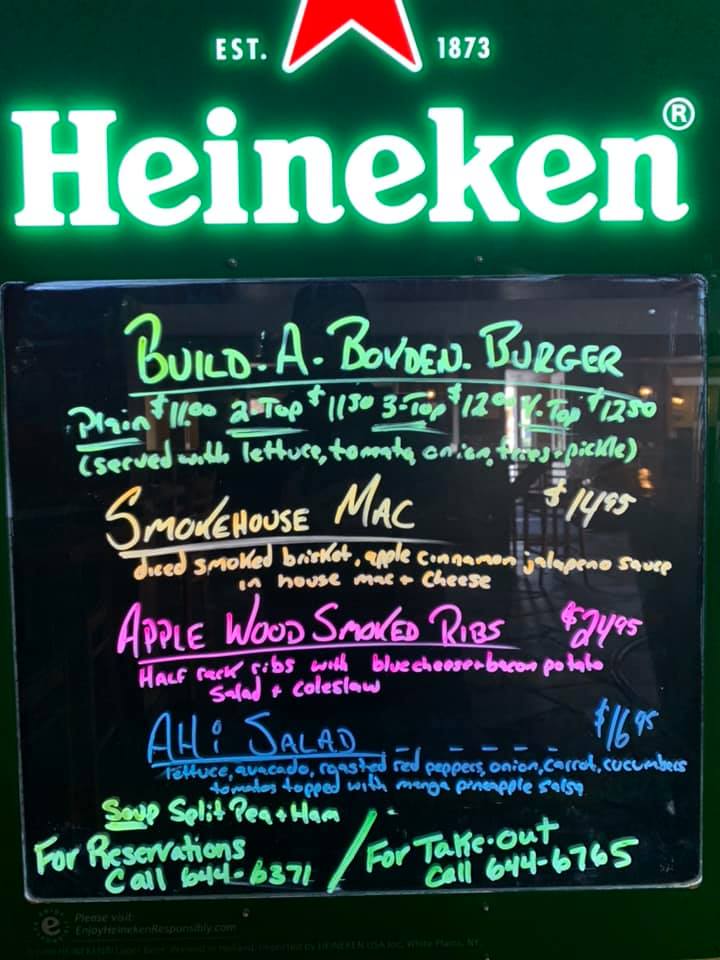 EST. 1873
Heineken®
BUILD-A-BOYDEN-BURGER
Plain $11.00 2-Top $1150 3-Top $12.00 4-Top $1250
(served with lettuce, tomato, onion, fries + pickle)
SMOKEHOUSE MAC $14.95
diced smoked brisket, apple cinnamon jalapeno sauce
in house mac + Cheese
APPLE WOOD SMOKED RIBS $24.95
HALF rack ribs with bluecheese + bacon potato
Salad + coleslaw
AHi SALAD - - - - - - $16.95
lettuce, avacado, roasted red peppers, onion, carrot, cucumbers
tomatos topped with mango pineapple salsa
Soup Split Pea + Ham
For Reservations / For Take-out
Call 644-6371 Call 644-6765
Please visit:
EnjoyHeinekenResponsibly.com
Imported by HEINEKEN USA Inc. White Plains, NY.